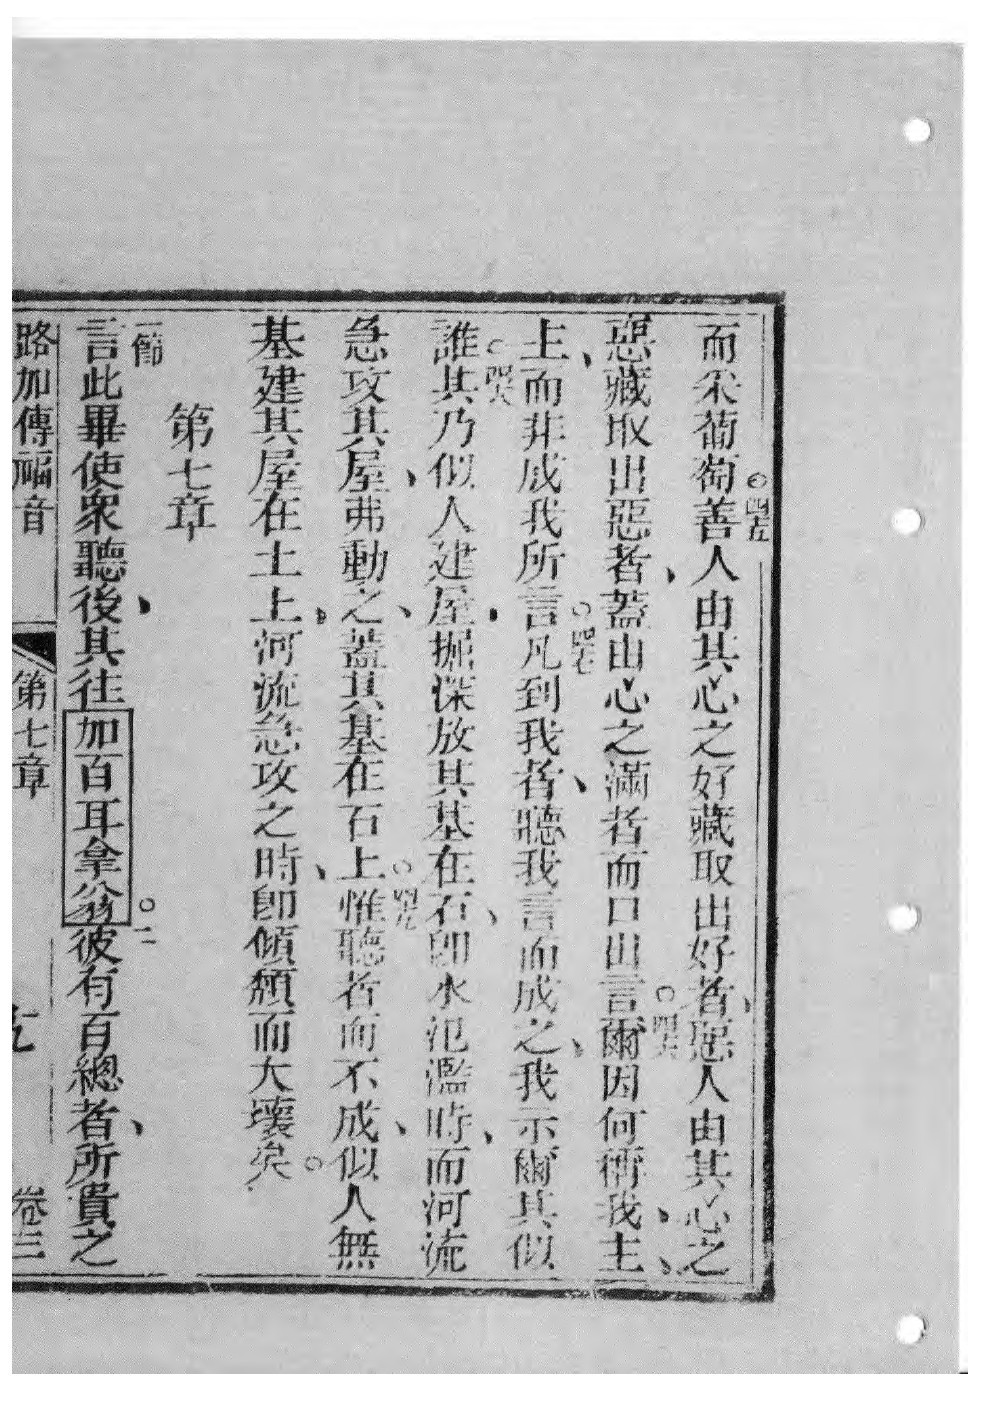 而采葡萄○四五善人由其心之好藏取出好者、惡人由其心之
惡藏取出惡者、蓋由心之滿者而口出言○四六爾因何稱我主、主、
而非成我所言○四七凡到我者、聽我言而成之、我示爾其似
誰○四八其乃似人建屋、掘深放其基在石、即水氾濫時、而河流
急攻其屋、弗動之、蓋其基在石上○四九惟聽者而不成、似人無
基建其屋在土上、河流急攻之時、即傾頹而大壞矣○
第七章
一節言此畢使眾聽後、其往加百耳拿翁○二彼有百總者、所貴之
路加傳福音 第七章 九 卷三